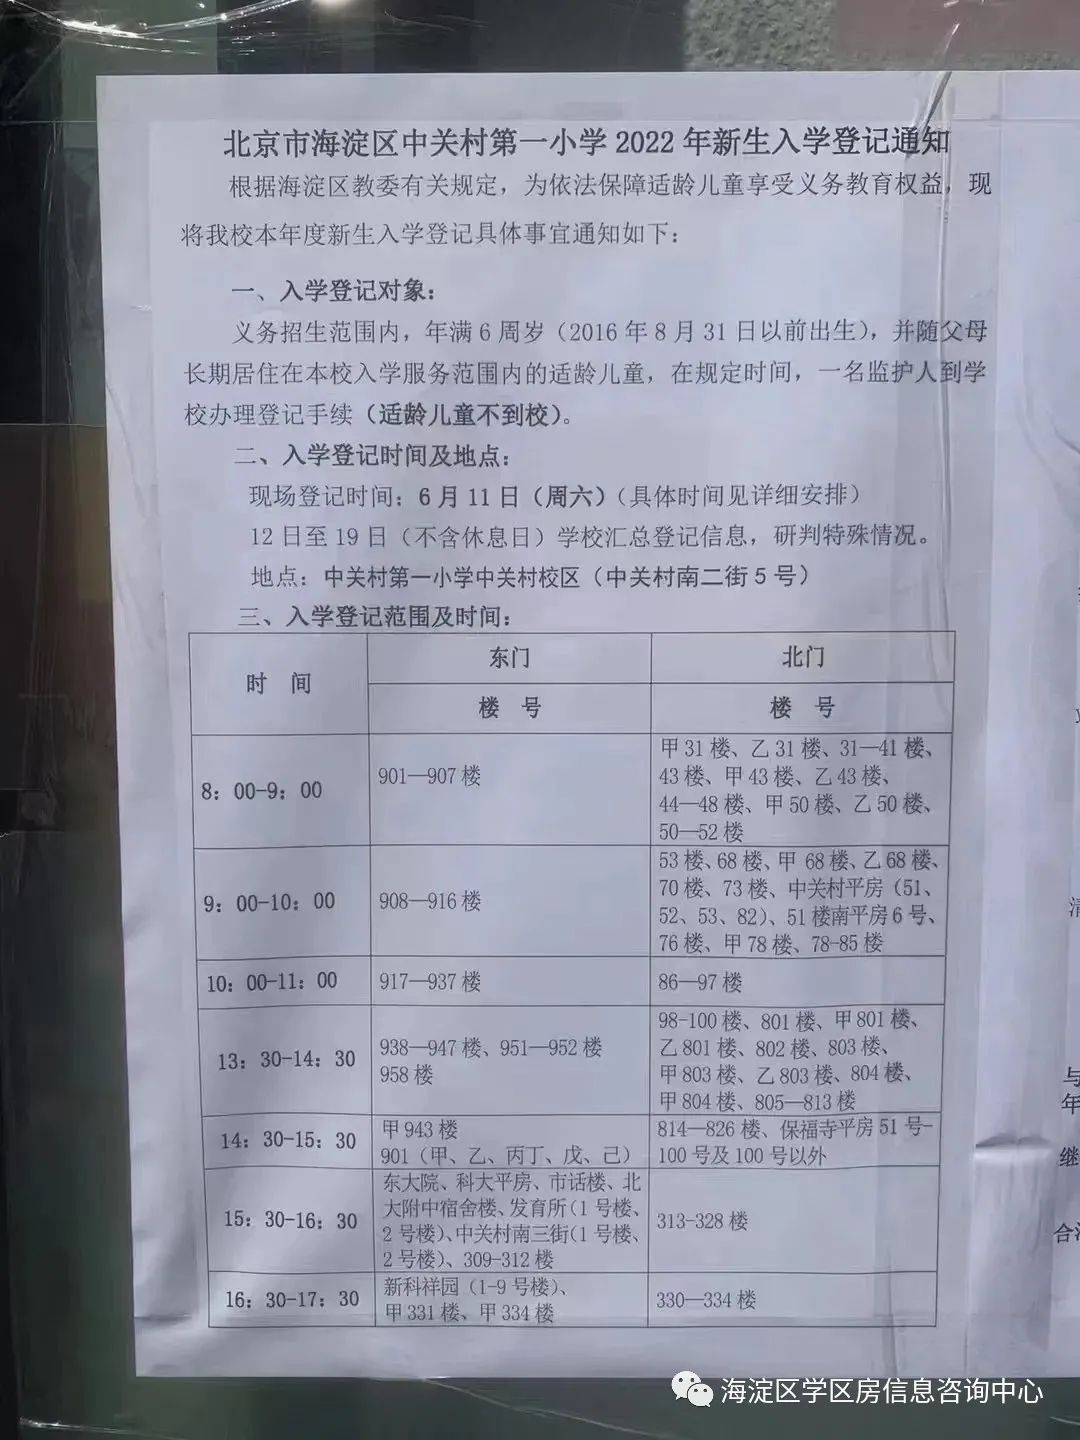 北京市海淀区中关村第一小学2022年新生入学登记通知
根据海淀区教委有关规定，为依法保障适龄儿童享受义务教育权益，现
将我校本年度新生入学登记具体事宜通知如下：
一、入学登记对象：
义务招生范围内，年满6周岁（2016年8月31日以前出生），并随父母
长期居住在本校入学服务范围内的适龄儿童，在规定时间，一名监护人到学
校办理登记手续（适龄儿童不到校）。
二、入学登记时间及地点：
现场登记时间：6月11日（周六）（具体时间见详细安排）
12日至19日（不含休息日）学校汇总登记信息，研判特殊情况。
地点：中关村第一小学中关村校区（中关村南二街5号）
三、入学登记范围及时间：
时 间
东门
北门
楼 号
楼 号
8：00-9：00
901—907楼
甲31楼、乙31楼、31—41楼、
43楼、甲43楼、乙43楼、
44—48楼、甲50楼、乙50楼、
50—52楼
9：00-10：00
908—916楼
53楼、68楼、甲68楼、乙68楼、
70楼、73楼、中关村平房（51、
52、53、82）、51楼南平房6号、
76楼、甲78楼、78-85楼
10：00-11：00
917—937楼
86—97楼
13：30-14：30
938—947楼、951—952楼
958楼
98-100楼、801楼、甲801楼、
乙801楼、802楼、803楼、
甲803楼、乙803楼、804楼、
甲804楼、805—813楼
14：30-15：30
甲943楼
901（甲、乙、丙丁、戊、己）
814—826楼、保福寺平房51号-
100号及100号以外
15：30-16：30
东大院、科大平房、市话楼、北
大附中宿舍楼、发育所（1号楼、
2号楼）、中关村南三街（1号楼、
2号楼）、309-312楼
313-328楼
16：30-17：30
新科祥园（1-9号楼）、
甲331楼、甲334楼
330—334楼
与
年
继
海淀区学区房信息咨询中心